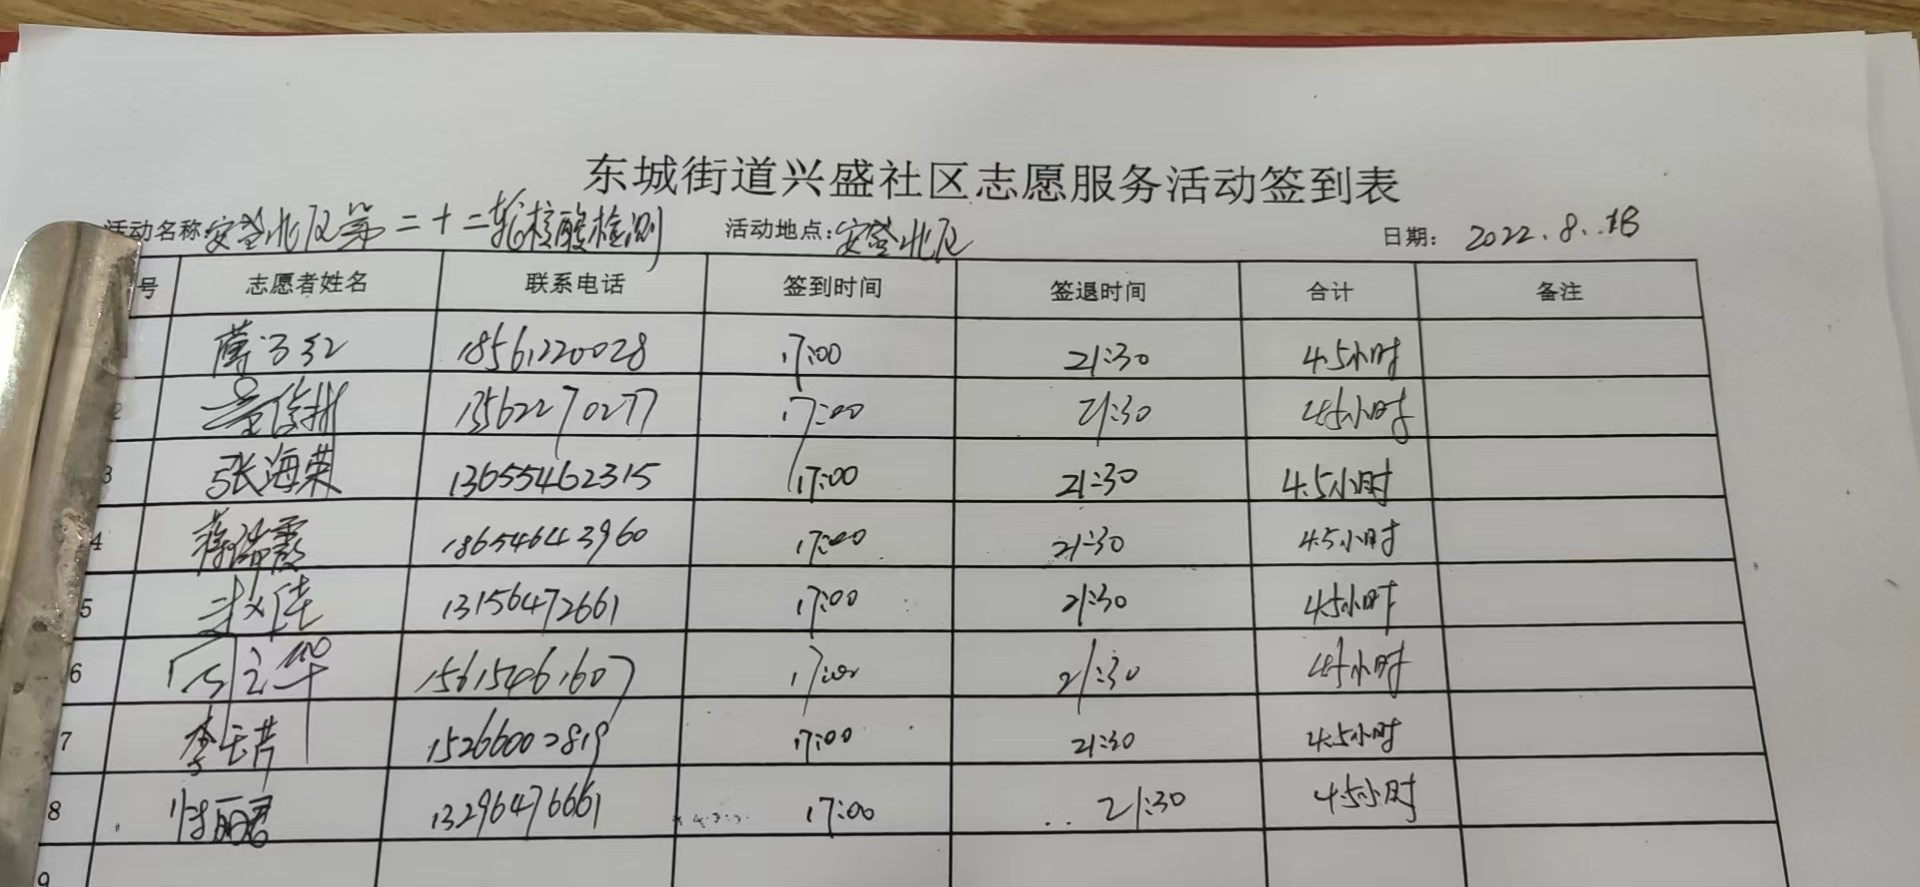 东城街道兴盛社区志愿服务活动签到表
活动名称 安登北区第二十二轮核酸检测 活动地点: 安登北区 日期: 2022.8.
号 志愿者姓名 联系电话 签到时间 签退时间 合计 备注
18561220028 17:00 21:30 4.5小时
2 13562270277 17:00 21:30 4.5小时
3 张海荣 13655462315 17:00 21:30 4.5小时
4 蒋瑞霞 18654643960 17:00 21:30 4.5小时
5 赵佳 13156472661 17:00 21:30 4.5小时
6 15615461607 17:00 21:30 4.5小时
7 15266002819 17:00 21:30 4.5小时
8 13296476661 17:00 21:30 4.5小时
9